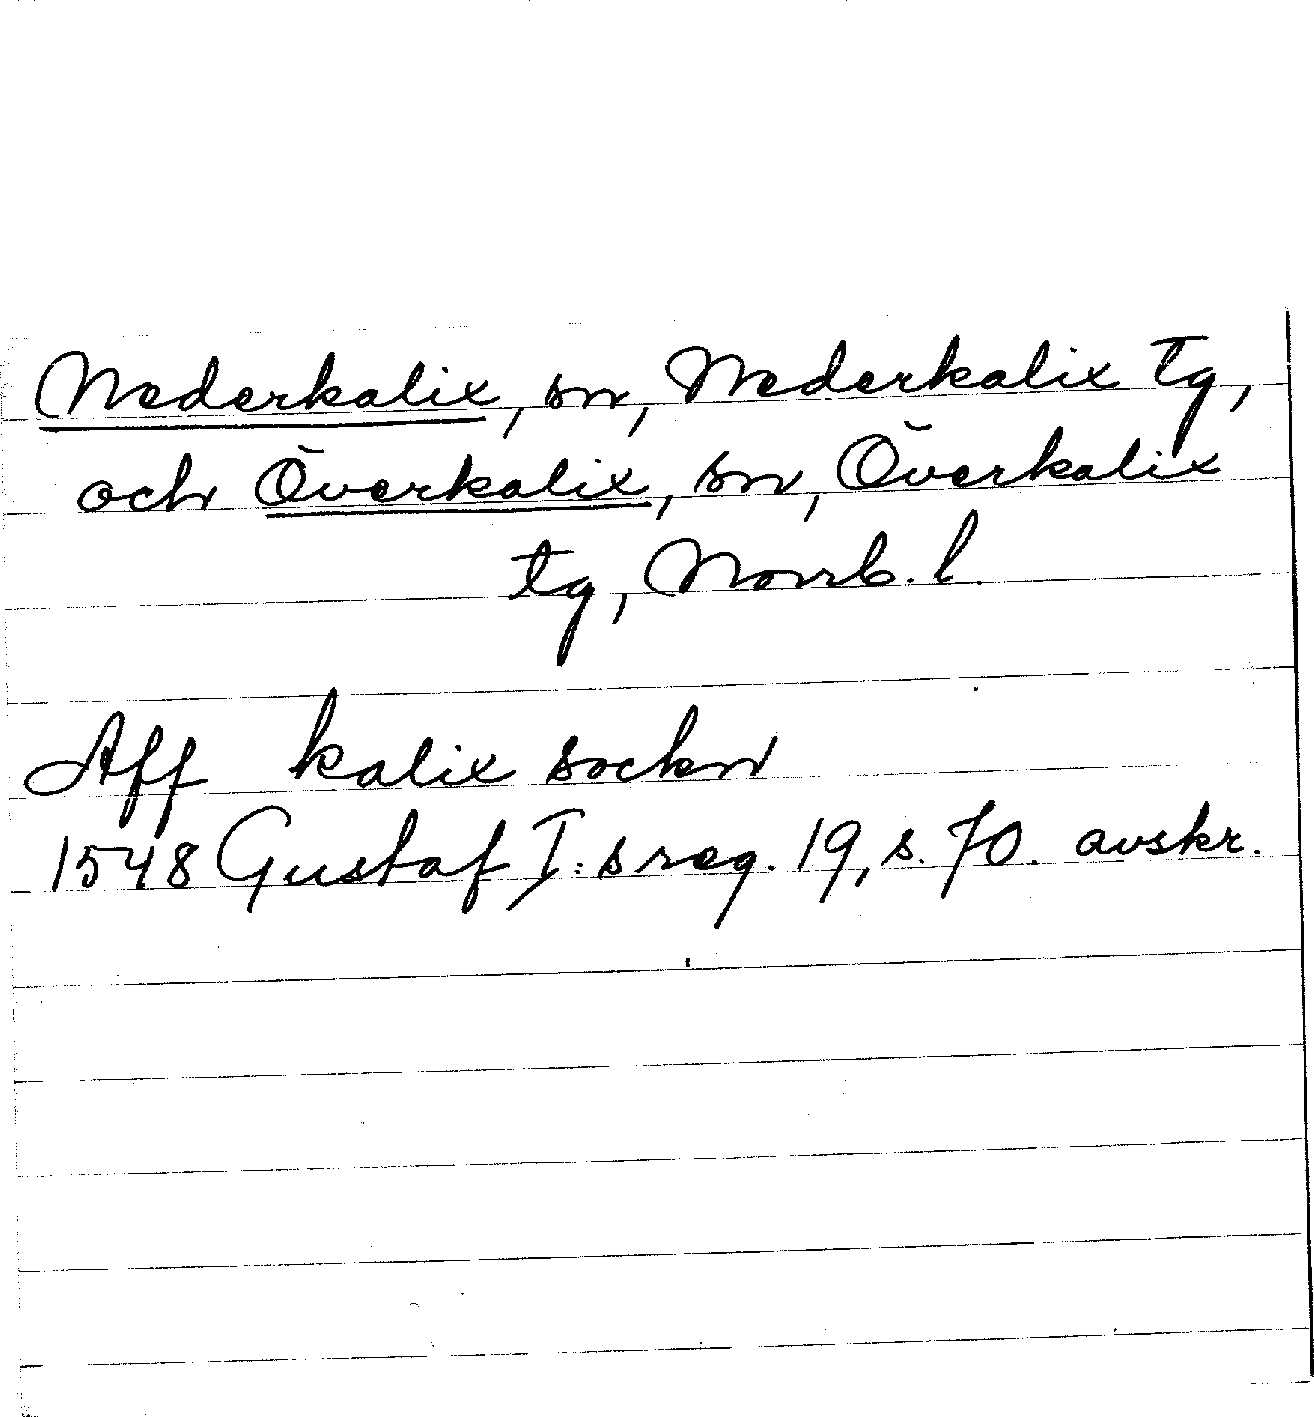 Nederkalix, sn, Nederkalix tg,
och Överkalix, sn, Överkalix
tg, Norrb. l.
Aff kalix sockn
1548 Gustaf I:s reg. 19, s. 70. avskr.